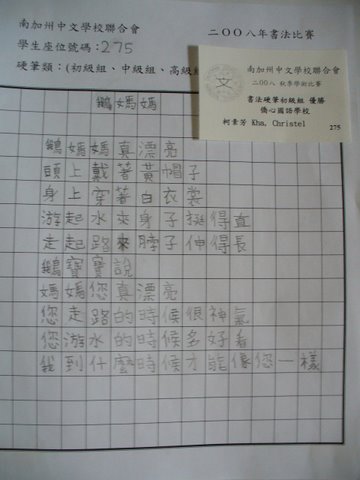 南加州中文學校聯合會
二〇〇八年書法比賽
學生座位號碼:275
硬筆類:(初級組、中級組、高級組
南加州中文學校聯合會
二〇〇八 秋季學術比賽
書法硬筆初級組 優勝
僑心國語學校
柯素芳 Kha, Christel
275
鵝媽媽
鵝媽媽真漂亮
頭上戴著黃帽子
身上穿著白衣裳
游起水來身子挺得直
走起路來脖子伸得長
鵝寶寶說
媽媽您真漂亮
您走路的時候很神氣
您游水的時候多好看
我到什麼時候才能像您一樣